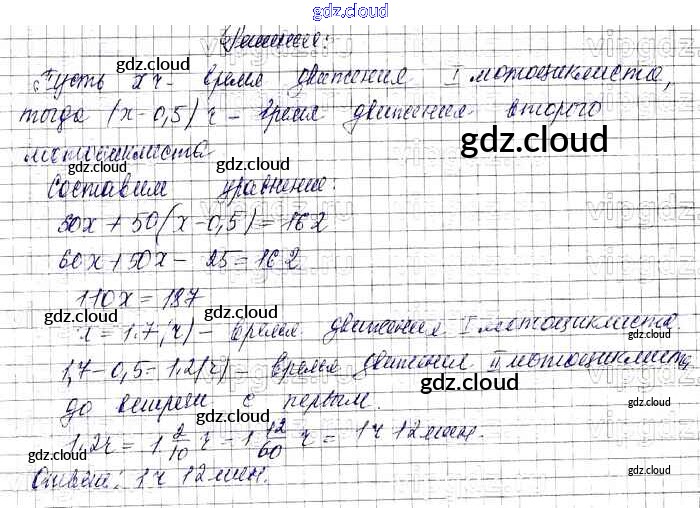 gdz.cloud
Решение:
Пусть x ч - время движения I мотоциклиста,
тогда (x-0,5) ч - время движения второго
gdz.cloud
мотоциклиста
gdz.cloud
gdz.cloud
Составим уравнение:
60x + 50(x-0,5) = 162
gdz.cloud
60x + 50x - 25 = 162
gdz.cloud
110x = 187
gdz.cloud
gdz.cloud
x = 1,7 (ч) - время движения I мотоциклиста.
1,7 - 0,5 = 1,2(ч) - время движения II мотоциклиста
gdz.cloud
до встречи с первым.
gdz.cloud
gdz.cloud
1,2ч = 1 2/10 ч = 1 12/60 ч = 1ч 12мин.
gdz.cloud
gdz.cloud
Ответ: 1ч 12мин.
gdz.cloud